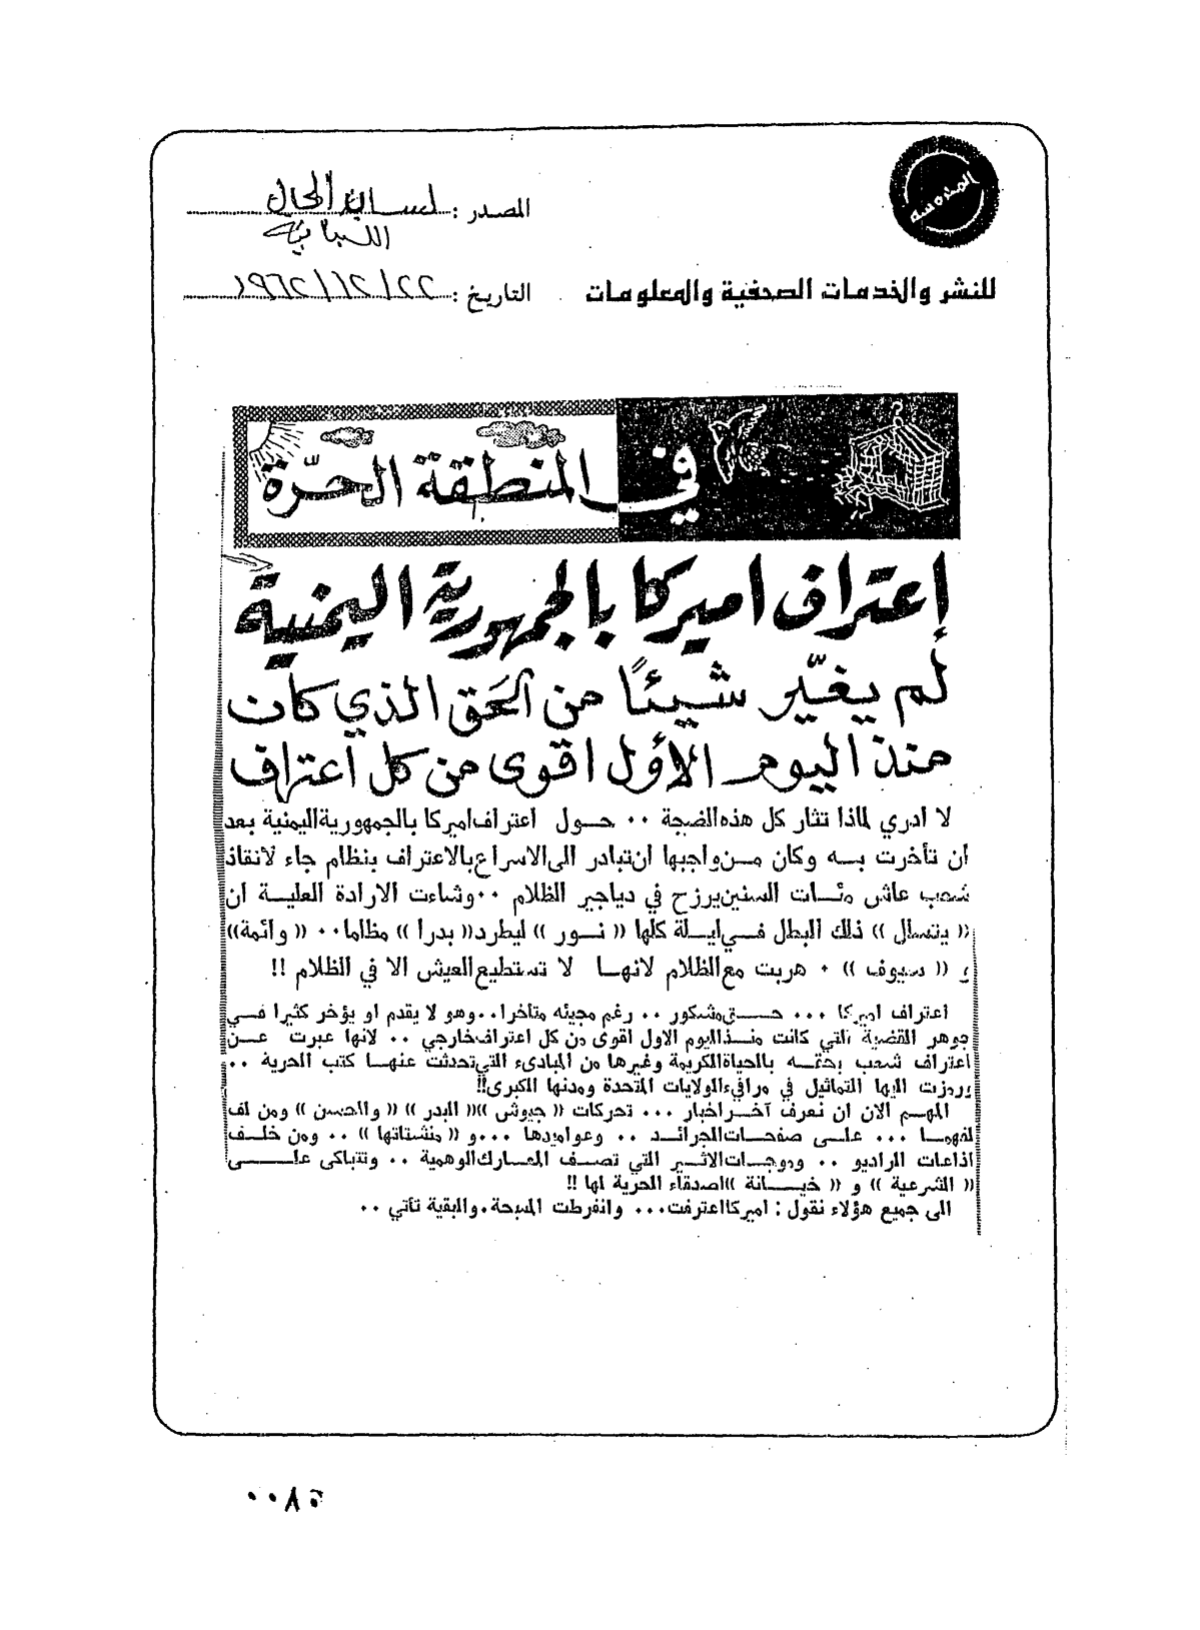 المصدر : لسان الحال
اللبنانية
للنشر والخدمات الصحفية والمعلومات
التاريخ : ٢٢/١٢/١٩٦٢
في المنطقة الحرّة
إعتراف اميركا بالجمهورية اليمنية
لم يغيّر شيئاً من الحَق الذي كان
منذ اليوم الأول اقوى من كل اعتراف
لا ادري لماذا تثار كل هذه الضجة ٠٠ حول اعتراف اميركا بالجمهورية اليمنية بعد
ان تأخرت به وكان من واجبها ان تبادر الى الاسراع بالاعتراف بنظام جاء لانقاذ
شعب عاش مئات السنين يرزح في دياجير الظلام ٠٠ وشاءت الارادة العلية ان
« يتسلل » ذلك البطل في ليلة كلها « نور » ليطرد « بدرا » مظلما ٠٠ « وائمة »
و « سيوف » ٠ هربت مع الظلام لانها لا تستطيع العيش الا في الظلام !!
اعتراف اميركا ٠٠٠ حق مشكور ٠٠ رغم مجيئه متأخرا ٠٠ وهو لا يقدم او يؤخر كثيرا في
جوهر القضية التي كانت منذ اليوم الاول اقوى من كل اعتراف خارجي ٠٠ لانها عبرت عن
اعتراف شعب بحقه بالحياة الكريمة وغيرها من المبادىء التي تحدثت عنها كتب الحرية ٠٠
ورمزت اليها التماثيل في مرافيء الولايات المتحدة ومدنها الكبرى!!
المهم الان ان نعرف آخر اخبار ٠٠٠ تحركات « جيوش » « البدر » « والحسن » ومن لف
لفهما ٠٠٠ على صفحات الجرائد ٠٠ وعواميدها ٠٠٠ و « منشتاتها » ٠٠ ومن خلف
اذاعات الراديو ٠٠ وموجات الاثير التي تصف المعارك الوهمية ٠٠ وتتباكى على
« الشرعية » و « خيانة » اصدقاء الحرية لها !!
الى جميع هؤلاء نقول : اميركا اعترفت ٠٠٠ وانفرطت المسبحة ٠ والبقية تأتي ٠٠